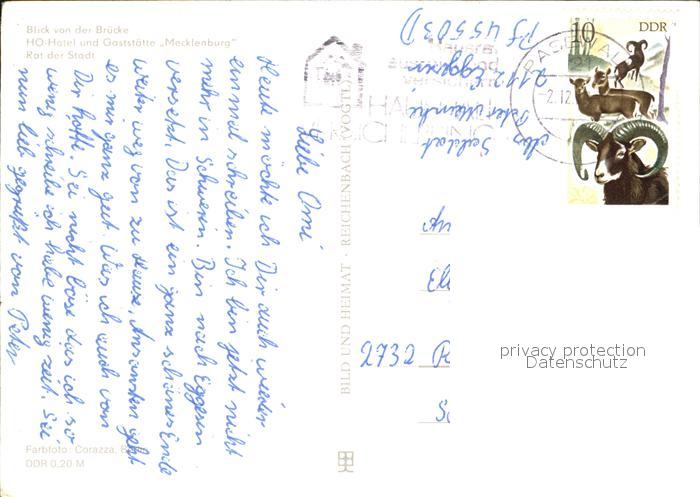 Blick von der Brücke
HO-Hotel und Gaststätte „Mecklenburg"
Rat der Stadt
Liebe Omi
Heute möchte ich Dir auch wieder
einmal schreiben. Ich bin jetzt nicht
mehr in Schwerin. Bin nach Eggesin
versetzt. Das ist ein ganz schönes Ende
weiter weg von zu Hause. Ansonsten geht
es mir ganz gut. Was ich auch von
Dir hoffe. Sei nicht böse das ich so
wenig schreibe ich habe wenig zeit. Sei
nun lieb gegrüßt von Peter
Farbfoto: Corazza, B
DDR 0,20 M
BILD UND HEIMAT · REICHENBACH (VOGTL
Abs. Soldat
Peter
2112 Eggesin
Pf 45503 D
PASEWAL
21
-2.12
10
DDR
2732
privacy protection
Datenschutz